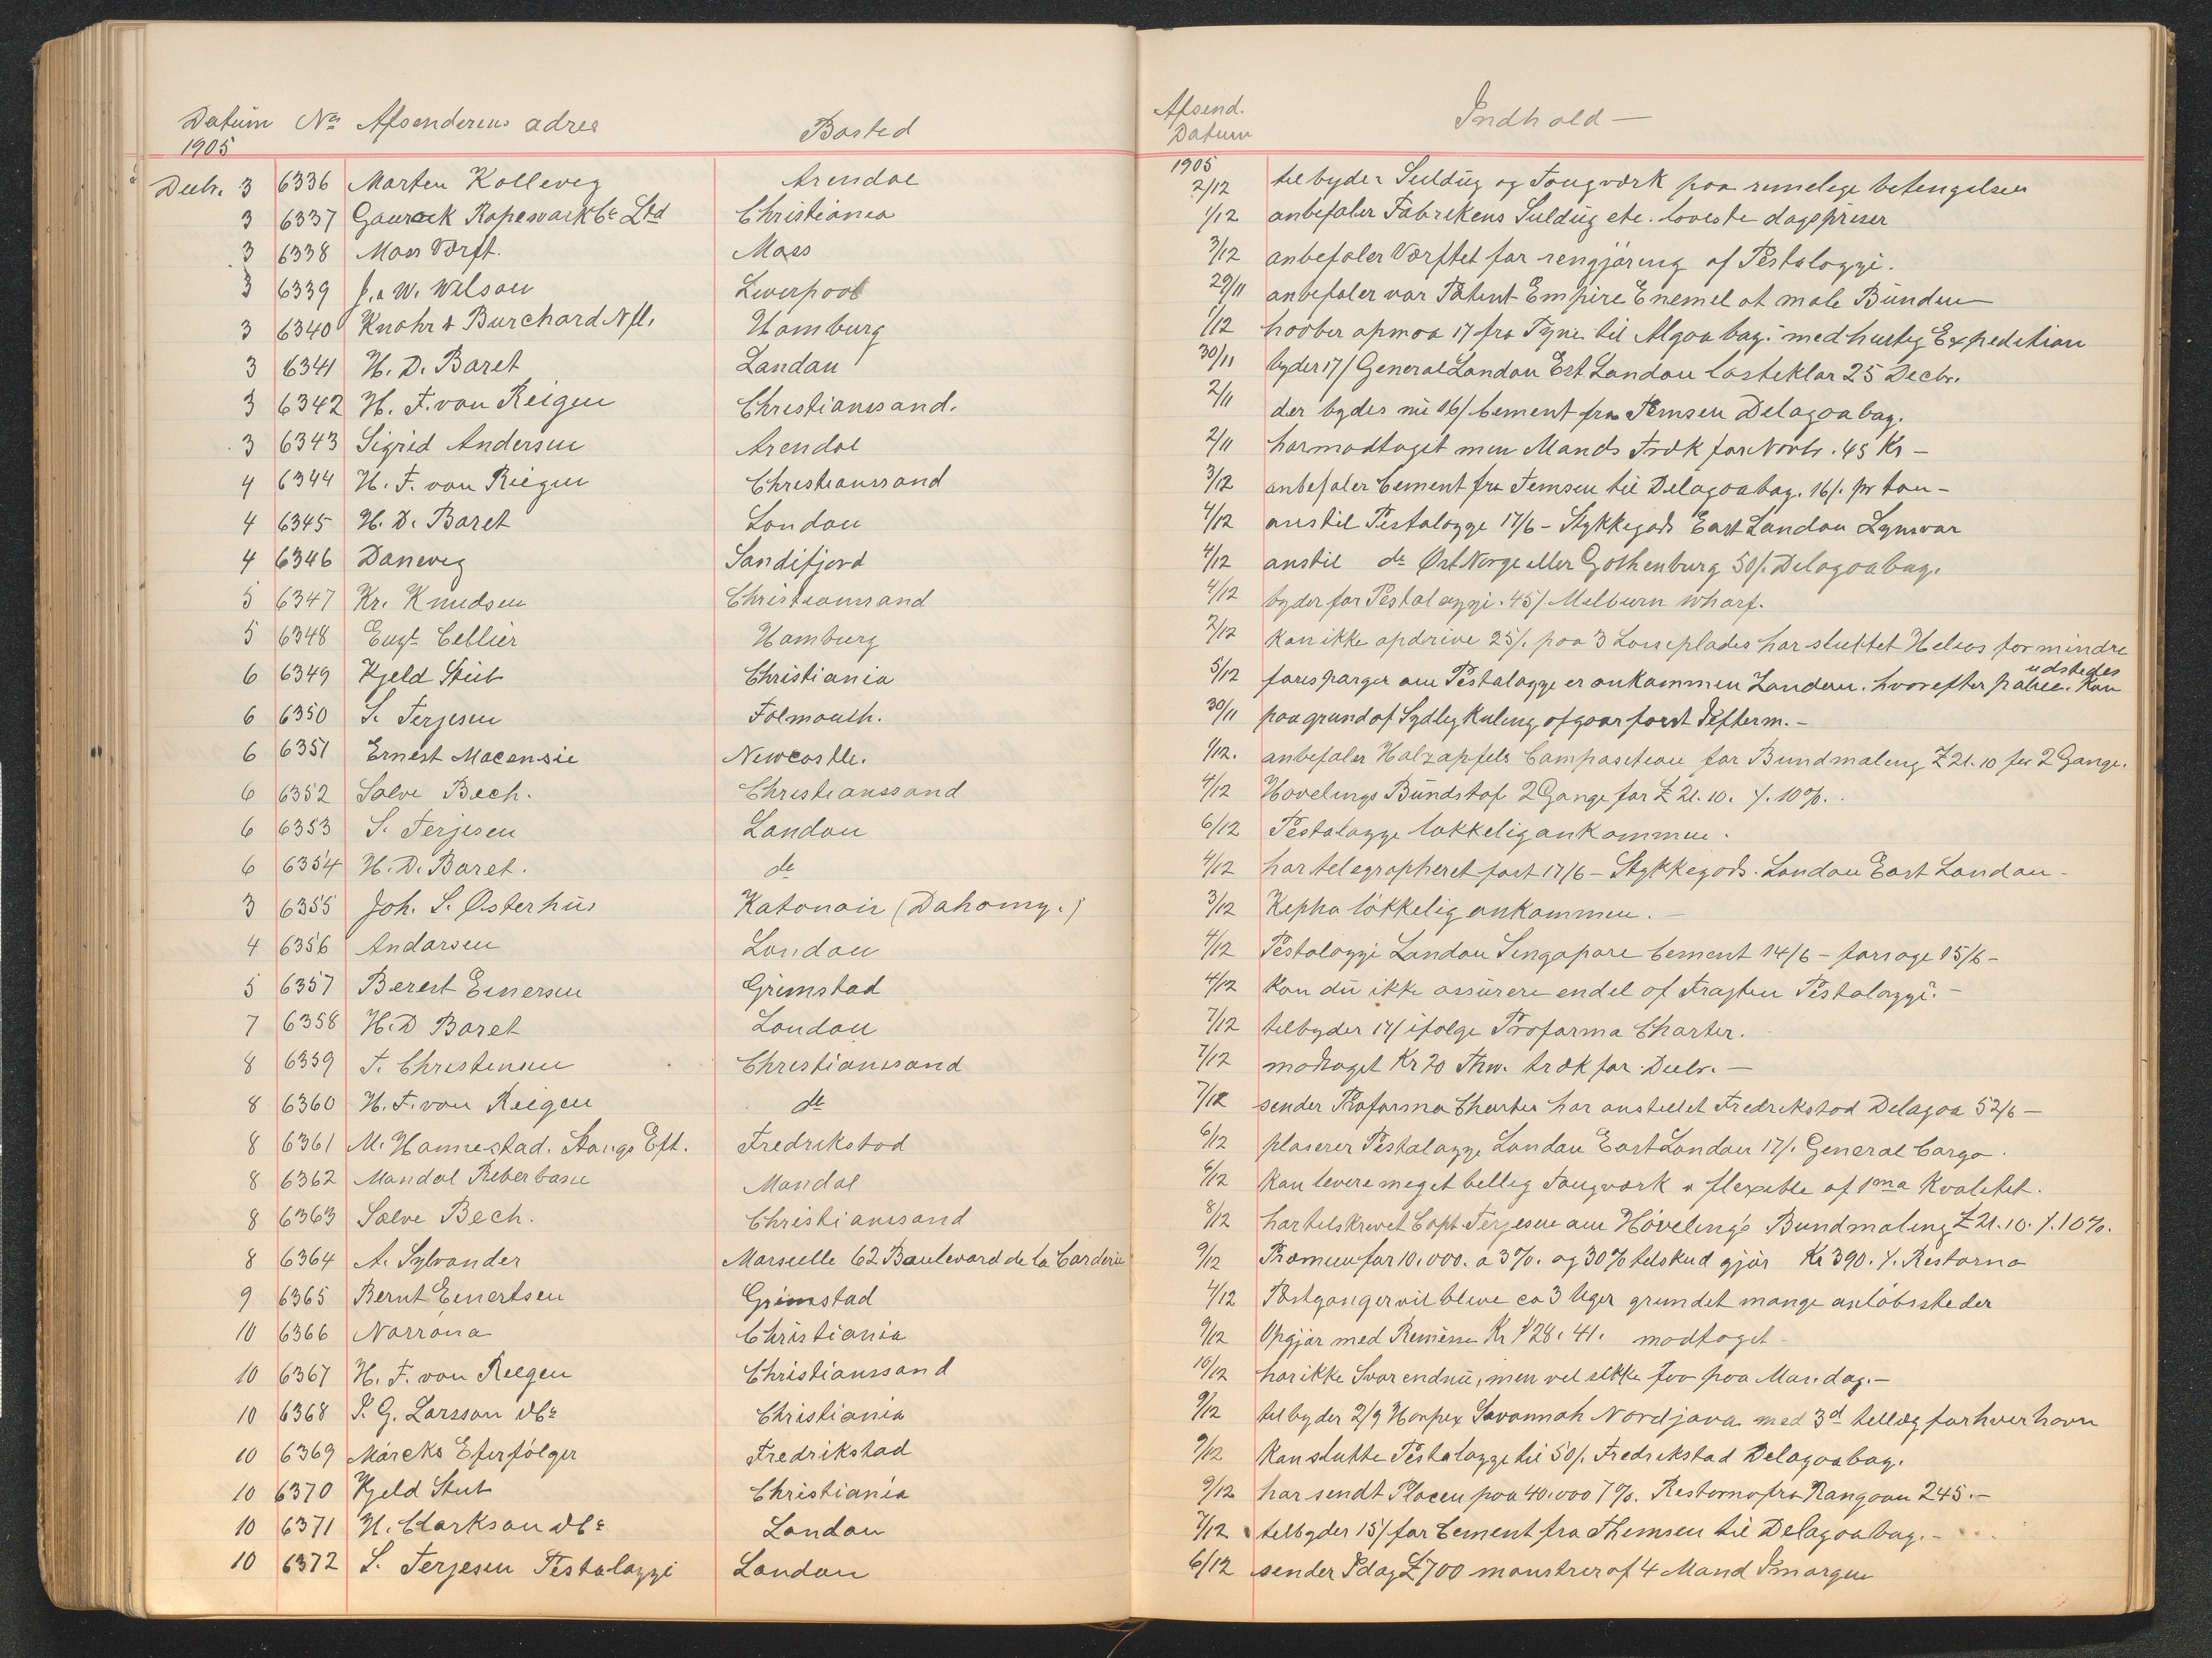 Datum No Afsenderens adres Bosted Afsend. Datum Indhold —
1905 1905
Decbr. 3 6336 Morten Kollevig Arendal 2/12 tilbyder Seildug og Tougværk paa rimelige betingelser
3 6337 Gourock Ropewark Co Ltd Christiania 1/12 anbefaler Fabrikens Seildug etc. laveste dagspriser
3 6338 Moss Værft. Moss 3/12 anbefaler Værftet for rengjøring af Pestalozzi.
3 6339 J. & W. Wilson Liverpool 29/11 anbefaler vor Patent Empire Enemel at male Bunden
3 6340 Knohr & Burchard Nfl. Hamburg 1/12 haaber opnaa 17 fra Tyne til Algoa bay. med hurtig Expedition
3 6341 H. D. Baret London 30/11 byder 17/ General London Est London lasteklar 25 Decbr.
3 6342 H. F. von Reigen Christianssand. 2/11 der bydes nu 16/ Cement fra Temsen Delagoa bay.
3 6343 Sigrid Andersen Arendal 2/11 har modtaget min Mands Træk for Novbr. 45 Kr –
4 6344 H. F. von Riegen Christianssand 3/12 anbefaler Cement fra Temsen til Delagoabay. 16/. pr ton –
4 6345 H. D. Baret London 4/12 anstil Pestalozzi 17/6 – Stykkegods East London
4 6346 Danevig Sandifjord 4/12 anstil do Øst Norge eller Gothenburg 50/. Delagoabay.
5 6347 Kr. Knudsen Christianssand 4/12 byder for Pestalozzi. 45/ Melburn wharf.
5 6348 Eugt. Cellier Hamburg 2/12 Kan ikke opdrive 25/. paa 3 Losseplades har sluttet Helios for mindre
6 6349 Kjeld Stub Christiania 5/12 forespørger om Pestalozzi er ankommen London. hvorefter police. Kan udstedes
6 6350 S. Terjesen Folmouth. 30/11 paa grund af Sydlig Kuling afgaar først Efterm. –
6 6351 Ernest Macensie Newcastle. 1/12. anbefaler Holzapfels Composition for Bundmaling £ 21.10 for 2 Gange.
6 6352 Salve Bech. Christianssand 4/12 Hovelings Bundstof 2 Gange for £ 21.10. %. 10%.
6 6353 S. Terjesen London 6/12 Pestalozzi lykkelig ankommen.
6 6354 H. D. Baret. do 4/12 har telegrapheret fast 17/6 – Stykkegods. London East London –
3 6355 Joh. S. Østerhus Katonoir (Dahomy.) 3/12 Kepha lökkelig ankommen. —
4 6356 Andersen London 4/12 Pestalozzi London Singapore Cement 14/6 – forsøge 15/6 –
5 6357 Berent Einersen Grimstad 4/12 Kan du ikke assurere endel af Fragten Pestalozzi. –
7 6358 H. D Baret London 7/12 tilbyder 17/ ifølge Proforma Charter.
8 6359 T. Christensen Christianssand 7/12 modtaget Kr 70 træk for Decbr. —
8 6360 H. F. von Reigen do 7/12 sender Proforma Charter har anstillet Fredrikstad Delagoa 52/6 –
8 6361 M. Hannestad. Stangs Eft. Fredrikstad 6/12 placerer Pestalozzi London East London 17/. General Cargo.
8 6362 Mandal Reberbane Mandal 6/12 Kan levere meget billig Tougværk & flexible af 1ma Kvalitet.
8 6363 Salve Bech. Christianssand 8/12 har tilskrevet Capt. Terjesen om Hövelings Bundmaling £ 21.10. %. 10%.
8 6364 A. Sylvander Marseille 62 Boulevard de la Corderie 9/12 Præmien for 10.000. a 3%. og 30% tilskud gjör Kr 390. %. Restorno
9 6365 Bernt Einertsen Grimstad 4/12 Postganger vil blive ca 3 Uger grundet mange anlöbssteder
10 6366 Norrøna Christiania 9/12 Opgjør med Remisse Kr 128. 41. modtaget –
10 6367 H. F. von Reegen Christianssand 10/12 har ikke Svar endnu, men vil sikke faa paa Mandag. —
10 6368 S. G. Larsson & Co Christiania 9/12 tilbyder 2/9 Harpex Savannah Nordjava med 3d tillæg for hver havn
10 6369 Märcks Efterfölger Fredrikstad 9/12 Kan slutte Pestalozzi til 50/. Fredrikstad Delagoabay.
10 6370 Kjeld Stub Christiania 9/12 har sendt Placen paa 40.000 7%. Restorno fra Rangoon 245. –
10 6371 H. Clarkson & Co London 7/12 tilbyder 15/ for Cement fra Themsen til Delagoabay. –
10 6372 S. Terjesen Pestalozzi London 6/12 sender Idag £ 700 mønstrer af 4 Mand Imorgen